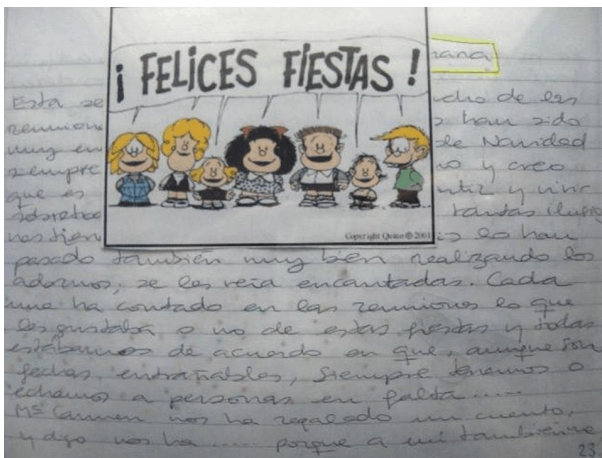 ¡ FELICES FIESTAS !
Copyright Quino © 2001
Esta se
reunion
muy en
siempre
que es
sobretod
nos tien
cho de las
s han sido
de Navidad
o y creo
y vivir
tantas
lo han
pasado también muy bien realizando los
adornos, se les veía encantadas. Cada
una ha contado en las reuniones lo que
les gustaba o no de estas fiestas y todas
estábamos de acuerdo en que, aunque son
fechas entrañables, siempre tenemos o
echamos a personas en falta....
Mª Carmen nos ha regalado un cuento,
y digo nos ha .... porque a mi también me
23